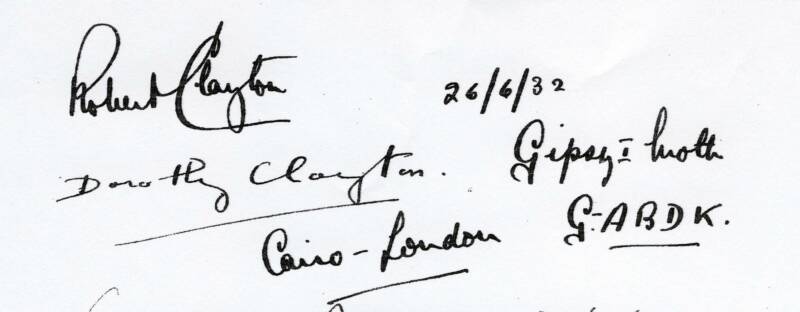 Robert Clayton 26/6/32
Dorothy Clayton. Gipsy I Moth
Cairo - London G-ABDK.